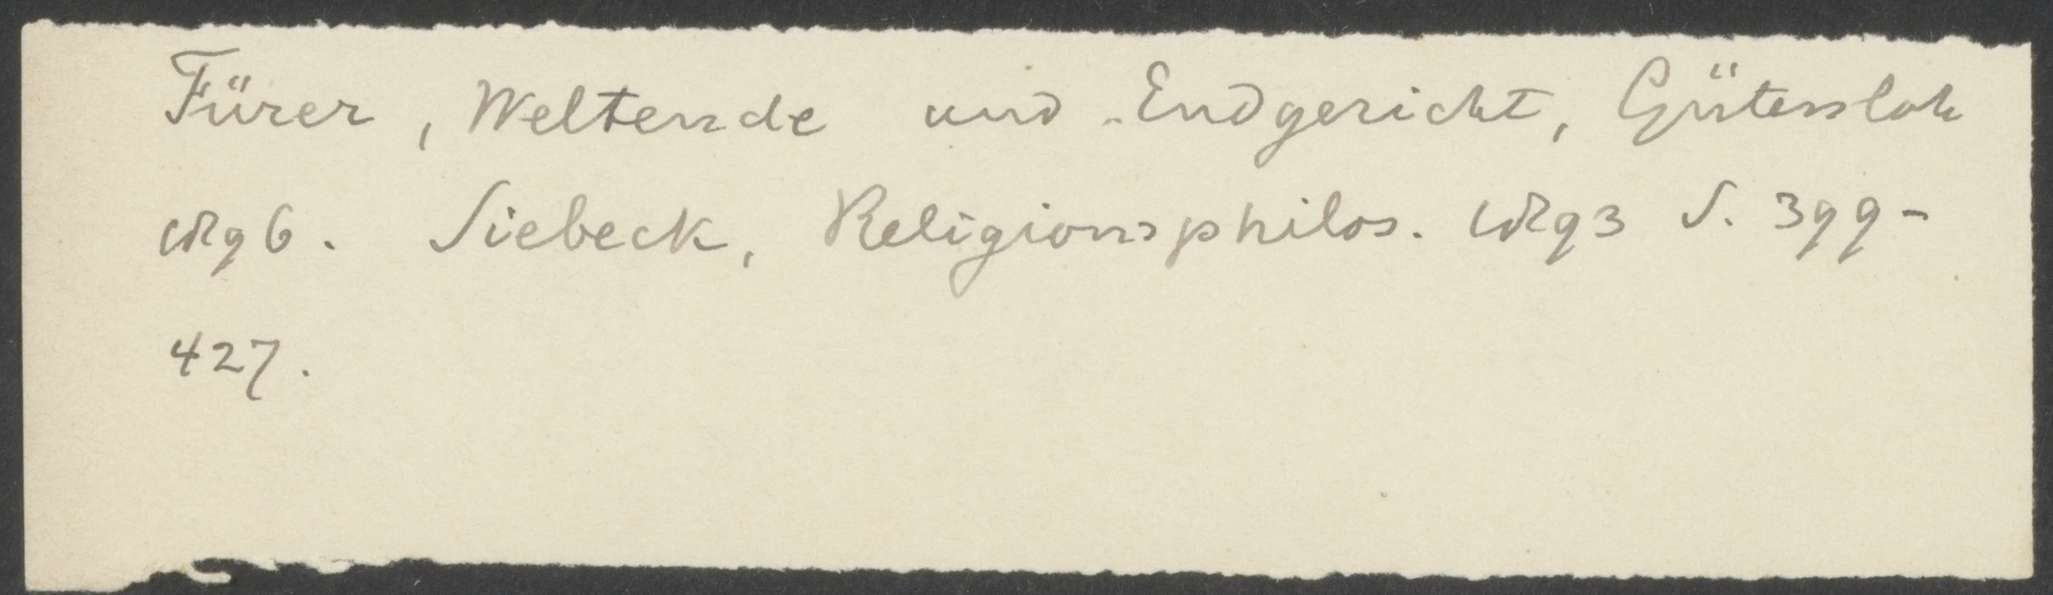 Fürer, Weltende und Endgericht, Gütersloh
1896. Siebeck, Religionsphilos. 1893 S. 399-
427.